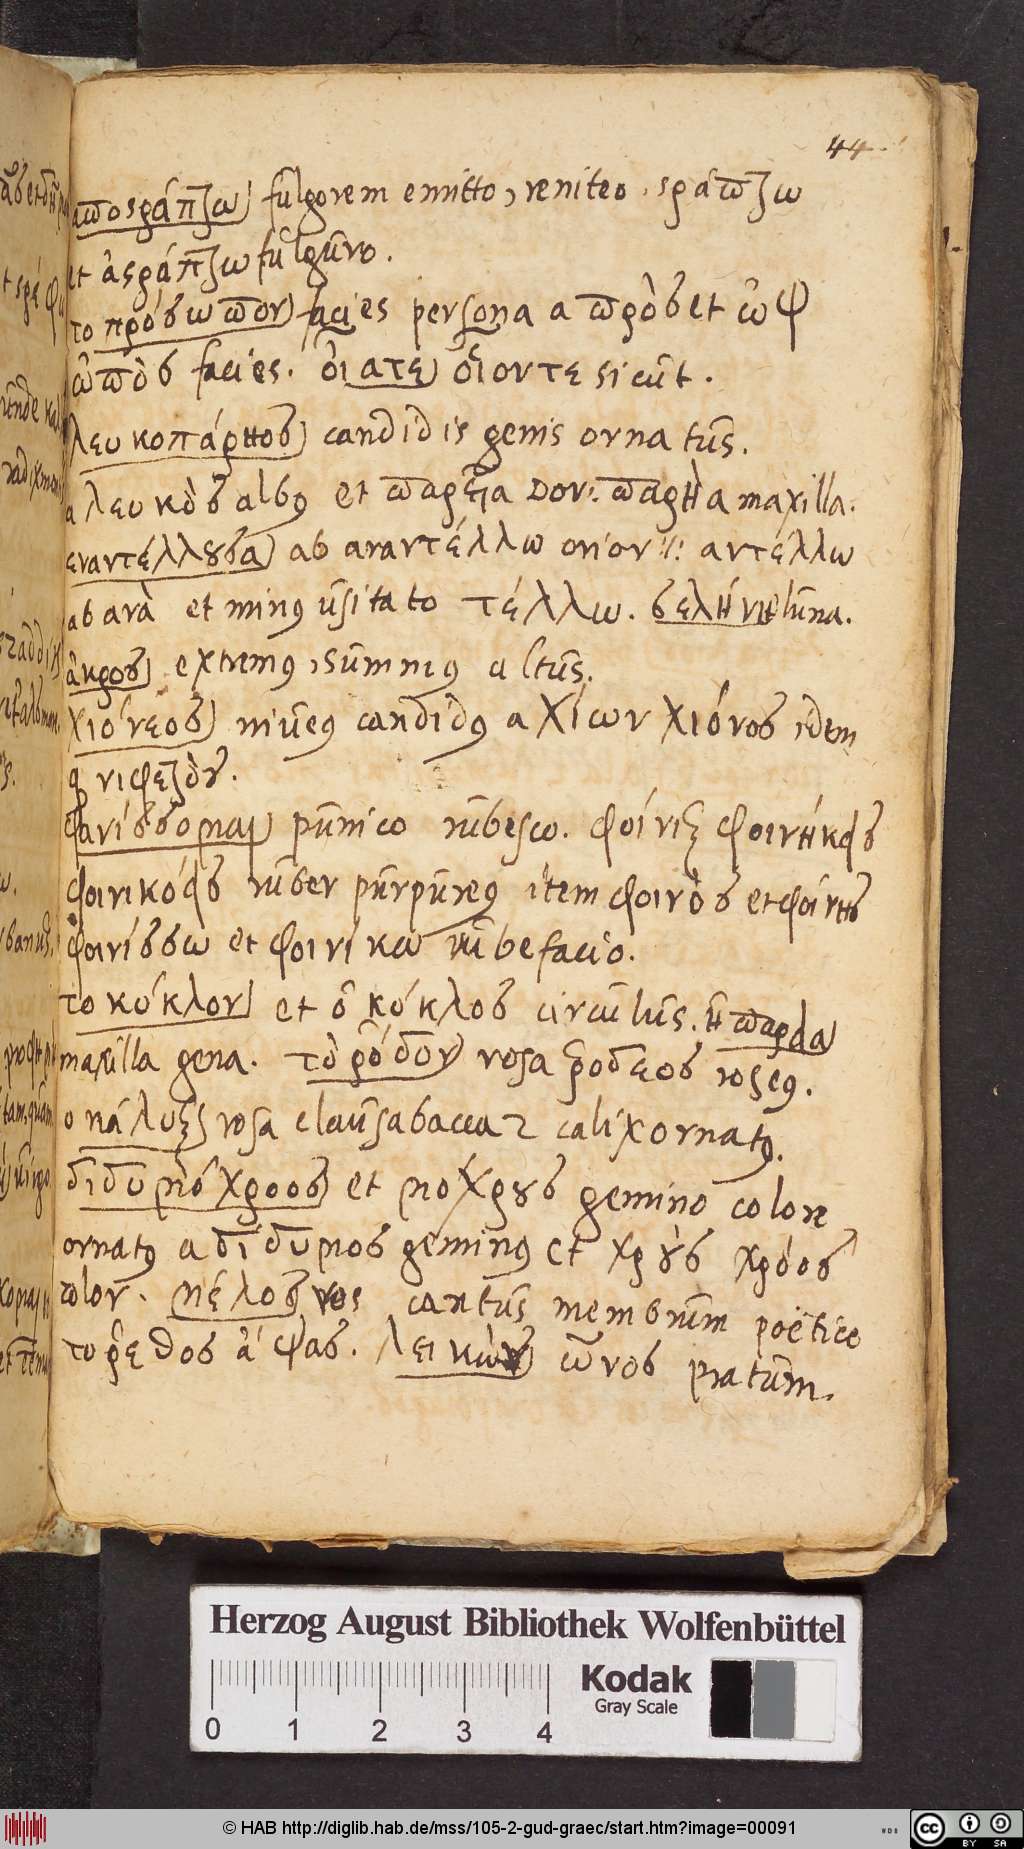 44.
αποστράπτω) fulgorem emitto, reniteo. στράπτω
et ἀστράπτω fulguro.
το πρόσωπον) facies persona a πρὸς et ὢψ
ὠπὸς facies. οἷατε) οἷοντε sicut.
λευκοπάρηος) candidis genis ornatus.
a λευκὸς albus et παρεῖα Dor. παρηὰ maxilla.
εναντέλλουσα) ab ανατέλλω orior. αντέλλω
ab ανὰ et minus usitato τέλλω. σελήνη luna.
ἄκρος) extremus, summus altus.
χιόνεος) niueus candidus a χίων χιόνος idem
φανίσσομαι) punico rubesco. φοίνιξ φοινηκος
φοινικόος ruber purpureus item φοινὸς et φοίνης
φοινίσσω et φοινίκω rubefacio.
το κύκλον) et ὁ κύκλος circulus. ἡ παρηα)
maxilla gena. τὸ ῥόδον) rosa ῥοδεος roseus.
ο κάλυξ) rosa clausa bacca calix ornatus.
διδυμόχροος) et μόχρους gemino colore
ornatus a δίδυμος geminus et χροὺς χρόος
color. μέλος) εος cantus membrum poëtice
το ῥεθος ἅψας. λεικὼν) ῶνος pratum.
Herzog August Bibliothek Wolfenbüttel
0 1 2 3 4
Kodak
Gray Scale
© HAB http://diglib.hab.de/mss/105-2-gud-graec/start.htm?image=00091
WDB
cc BY SA